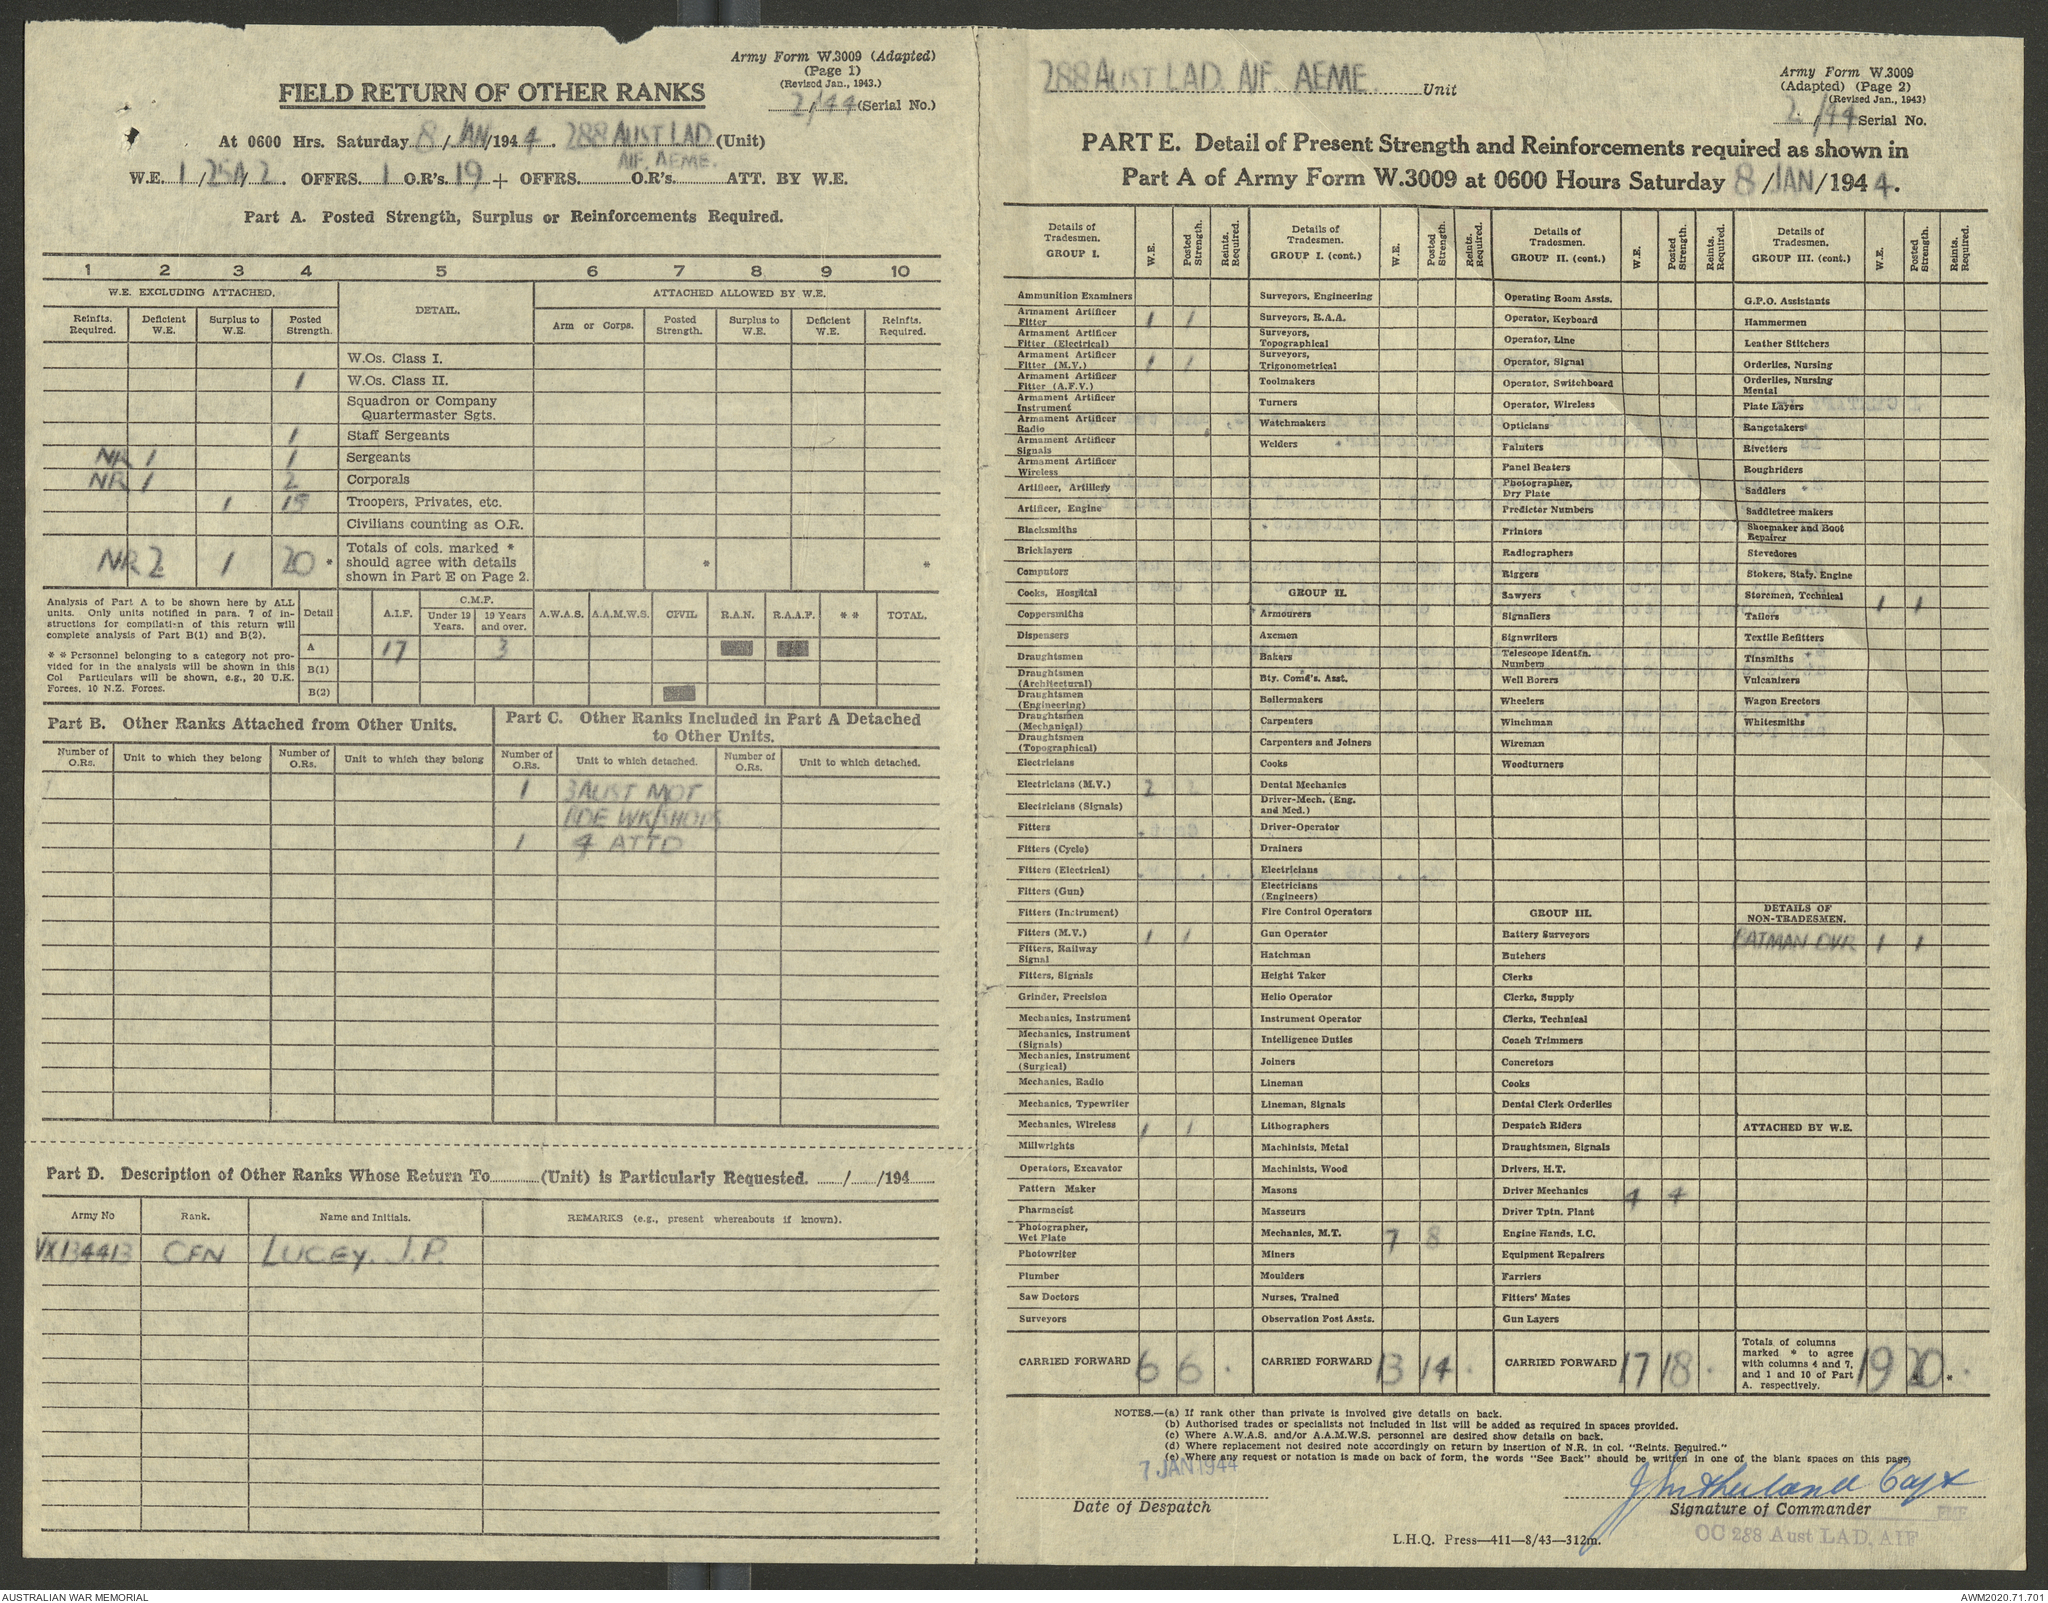 Army Form W.3009 (Adapted)
(Page 1)
(Revised Jan., 1943.)
FIELD RETURN OF OTHER RANKS
2/44 (Serial No.)
At 0600 Hrs. Saturday 8/JAN/1944. 288 AUST LAD (Unit)
AIF. AEME.
W.E. 1/25A/2. OFFRS. 1 O.R's. 19 + OFFRS. O.R's. ATT. BY W.E.
Part A. Posted Strength, Surplus or Reinforcements Required.
1 2 3 4 5 6 7 8 9 10
W.E. EXCLUDING ATTACHED. DETAIL. ATTACHED ALLOWED BY W.E.
Reinfts. Required. Deficient W.E. Surplus to W.E. Posted Strength. Arm or Corps. Posted Strength. Surplus to W.E. Deficient W.E. Reinfts. Required.
W.Os. Class I.
1 W.Os. Class II.
Squadron or Company
Quartermaster Sgts.
1 Staff Sergeants
NR 1 1 Sergeants
NR 1 2 Corporals
1 15 Troopers, Privates, etc.
Civilians counting as O.R.
NR 2 1 20 * Totals of cols. marked * should agree with details shown in Part E on Page 2. * *
Analysis of Part A to be shown here by ALL
units. Only units notified in para. 7 of in-
structions for compilati-n of this return will
complete analysis of Part B(1) and B(2).
* * Personnel belonging to a category not pro-
vided for in the analysis will be shown in this
Col Particulars will be shown, e.g., 20 U.K.
Forces, 10 N.Z. Forces.
Detail A.I.F. C.M.F. Under 19 Years. 19 Years and over. A.W.A.S. A.A.M.W.S. CIVIL R.A.N. R.A.A.F. * * TOTAL.
A 17 3
B(1)
B(2)
Part B. Other Ranks Attached from Other Units.
Part C. Other Ranks Included in Part A Detached
to Other Units.
Number of O.Rs. Unit to which they belong Number of O.Rs. Unit to which they belong Number of O.Rs. Unit to which detached. Number of O.Rs. Unit to which detached.
1 3 AUST MOT
BDE WKSHOPS
1 4 ATTD
Part D. Description of Other Ranks Whose Return To (Unit) is Particularly Requested. / /194
Army No Rank. Name and Initials. REMARKS (e.g., present whereabouts if known).
VX134413 CFN LUCEY. J.P.
288 AUST LAD. AIF. AEME. Unit
Army Form W.3009
(Adapted) (Page 2)
(Revised Jan., 1943)
2/44 Serial No.
PART E. Detail of Present Strength and Reinforcements required as shown in
Part A of Army Form W.3009 at 0600 Hours Saturday 8/JAN/1944.
Details of Tradesmen. GROUP I. W.E. Posted Strength. Reints. Required.
Ammunition Examiners
Armament Artificer Fitter 1 1
Armament Artificer Fitter (Electrical)
Armament Artificer Fitter (M.V.) 1 1
Armament Artificer Fitter (A.F.V.)
Armament Artificer Instrument
Armament Artificer Radio
Armament Artificer Signals
Armament Artificer Wireless
Artificer, Artillery
Artificer, Engine
Blacksmiths
Bricklayers
Computors
Cooks, Hospital
Coppersmiths
Dispensers
Draughtsmen
Draughtsmen (Architectural)
Draughtsmen (Engineering)
Draughtsmen (Mechanical)
Draughtsmen (Topographical)
Electricians
Electricians (M.V.) 2 2
Electricians (Signals)
Fitters
Fitters (Cycle)
Fitters (Electrical)
Fitters (Gun)
Fitters (Instrument)
Fitters (M.V.) 1 1
Fitters, Railway Signal
Fitters, Signals
Grinder, Precision
Mechanics, Instrument
Mechanics, Instrument (Signals)
Mechanics, Instrument (Surgical)
Mechanics, Radio
Mechanics, Typewriter
Mechanics, Wireless 1 1
Millwrights
Operators, Excavator
Pattern Maker
Pharmacist
Photographer, Wet Plate
Photowriter
Plumber
Saw Doctors
Surveyors
CARRIED FORWARD 6 6
Details of Tradesmen. GROUP I. (cont.) W.E. Posted Strength. Reints. Required.
Surveyors, Engineering
Surveyors, R.A.A.
Surveyors, Topographical
Surveyors, Trigonometrical
Toolmakers
Turners
Watchmakers
Welders
GROUP II.
Armourers
Axemen
Bakers
Bty. Comd's. Asst.
Boilermakers
Carpenters
Carpenters and Joiners
Cooks
Dental Mechanics
Driver-Mech. (Eng. and Med.)
Driver-Operator
Drainers
Electricians
Electricians (Engineers)
Fire Control Operators
Gun Operator
Hatchman
Height Taker
Helio Operator
Instrument Operator
Intelligence Duties
Joiners
Lineman
Lineman, Signals
Lithographers
Machinists, Metal
Machinists, Wood
Masons
Masseurs
Mechanics, M.T. 7 8
Miners
Moulders
Nurses, Trained
Observation Post Assts.
CARRIED FORWARD 13 14
Details of Tradesmen. GROUP II. (cont.) W.E. Posted Strength. Reints. Required.
Operating Room Assts.
Operator, Keyboard
Operator, Line
Operator, Signal
Operator, Switchboard
Operator, Wireless
Opticians
Painters
Panel Beaters
Photographer, Dry Plate
Predictor Numbers
Printers
Radiographers
Riggers
Sawyers
Signallers
Signwriters
Telescope Identfn. Numbers
Well Borers
Wheelers
Winchman
Wireman
Woodturners
GROUP III.
Battery Surveyors
Butchers
Clerks
Clerks, Supply
Clerks, Technical
Coach Trimmers
Concretors
Cooks
Dental Clerk Orderlies
Despatch Riders
Draughtsmen, Signals
Drivers, H.T.
Driver Mechanics 4 4
Driver Tptn. Plant
Engine Hands, I.C.
Equipment Repairers
Farriers
Fitters' Mates
Gun Layers
CARRIED FORWARD 17 18
Details of Tradesmen. GROUP III. (cont.) W.E. Posted Strength. Reints. Required.
G.P.O. Assistants
Hammermen
Leather Stitchers
Orderlies, Nursing
Orderlies, Nursing Mental
Plate Layers
Rangetakers
Rivetters
Roughriders
Saddlers
Saddletree makers
Shoemaker and Boot Repairer
Stevedores
Stokers, Staty. Engine
Storemen, Technical 1 1
Tailors
Textile Refitters
Tinsmiths
Vulcanizers
Wagon Erectors
Whitesmiths
DETAILS OF NON-TRADESMEN.
BATMAN DVR 1 1
ATTACHED BY W.E.
Totals of columns marked * to agree with columns 4 and 7, and 1 and 10 of Part A. respectively. 19 20 *
NOTES.—(a) If rank other than private is involved give details on back.
(b) Authorised trades or specialists not included in list will be added as required in spaces provided.
(c) Where A.W.A.S. and/or A.A.M.W.S. personnel are desired show details on back.
(d) Where replacement not desired note accordingly on return by insertion of N.R. in col. "Reints. Required."
(e) Where any request or notation is made on back of form, the words "See Back" should be written in one of the blank spaces on this page.
7 JAN 1944
Date of Despatch
J Sutherland Capt
Signature of Commander
OC 288 Aust LAD, AIF
L.H.Q. Press—411—8/43—312m.
AUSTRALIAN WAR MEMORIAL
AWM2020.71.701